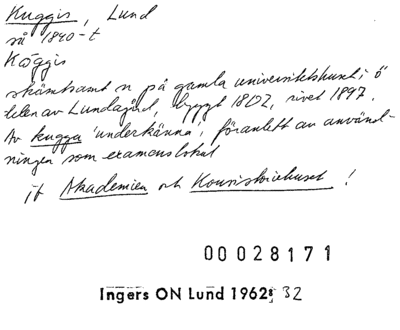 Kuggis, Lund
så 1840-t
Köggis
skämtsamt n på gamla universitetshuset i ö
delen av Lundagård, byggt 1802, rivet 1897.
Av kugga 'underkänna', föranlett av använd-
ningen som examenslokal
jf Akademien och Konsistoriehuset !
00028171
Ingers ON Lund 1962: 32